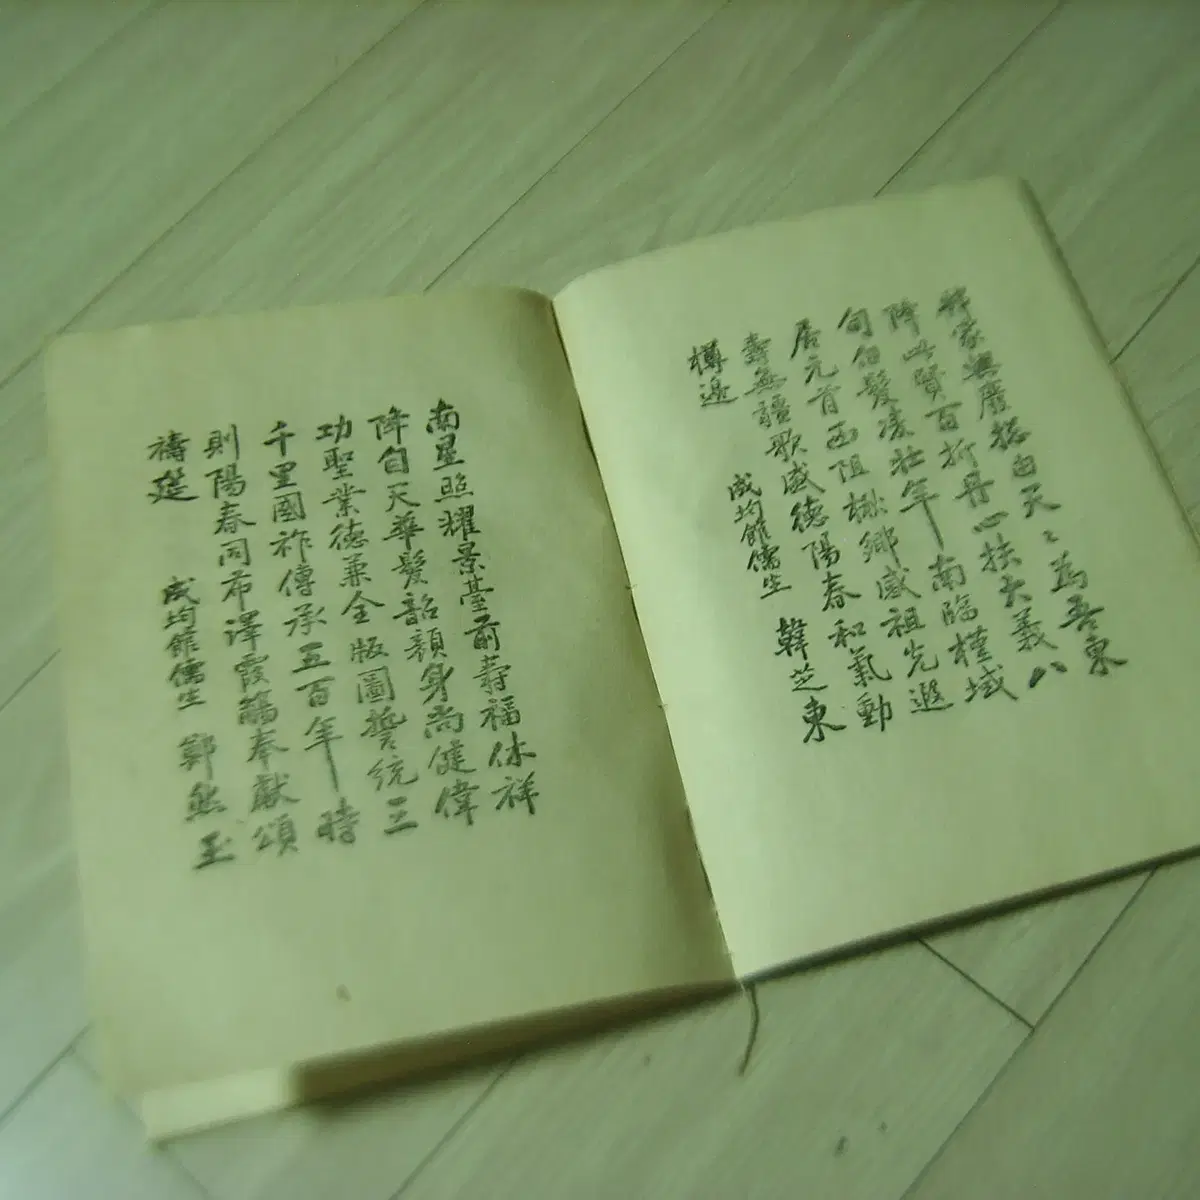 邦家興廢摠由天〻為吾東
降此賢百折丹心扶大義八
旬白髮凌壯年南臨槿域
居元首西阻楸鄉感祖先遐
壽無疆歌盛德陽春和氣動
樽邊
成均館儒生 韓芝東
南星照耀景臺前壽福休祥
降自天華髮韶顏身尚健偉
功聖業德兼全版圖誓統三
千里國祚傳承五百年時
則陽春同布澤霞觴奉獻頌
禱筵
成均館儒生 鄭然玉